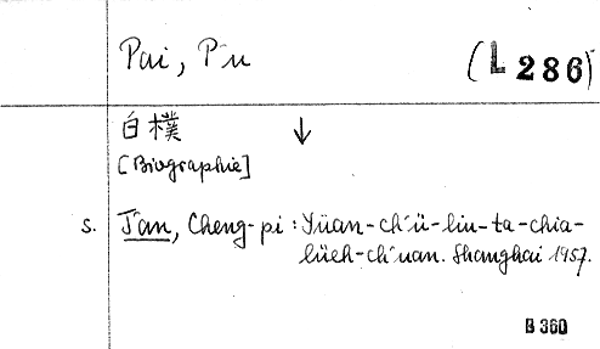 Pai, P'u
(L 286)
白樸 ↓
[Biographie]
s. T'an, Cheng-pi : Yüan-ch'ü-liu-ta-chia-
lüeh-ch'uan. Shanghai 1957.
B 360